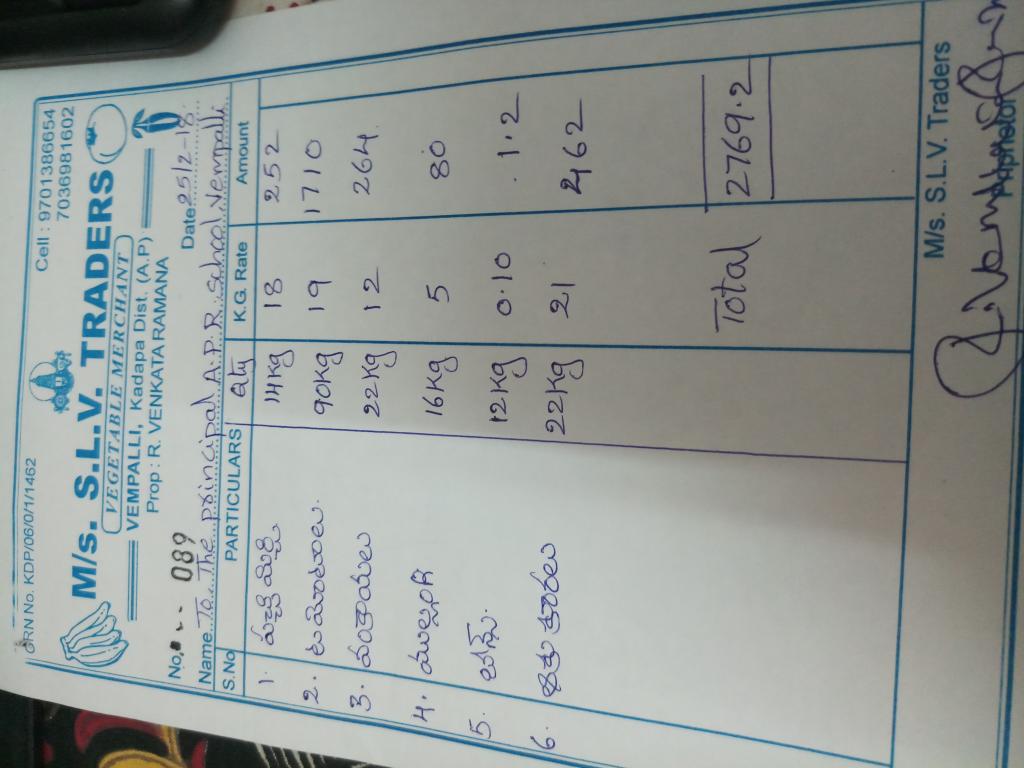 GRN No. KDP/06/0/1/1462 Cell : 9701386654
7036981602
M/s. S.L.V. TRADERS
VEGETABLE MERCHANT
VEMPALLI, Kadapa Dist. (A.P)
Prop : R. VENKATA RAMANA
No. 089 Date 25/2-18
Name To The principal A.P.R. School Vempalli
S.No PARTICULARS Qty K.G. Rate Amount
1. పచ్చి మిర్చి 14Kg 18 252
2. టమోటాలు 90Kg 19 1710
3. వంకాయలు 22Kg 12 264
4. ముల్లంగి 16Kg 5 80
5. 12Kg 0.10 1.2
6. 22Kg 21 462
Total 2769.2
M/s. S.L.V. Traders